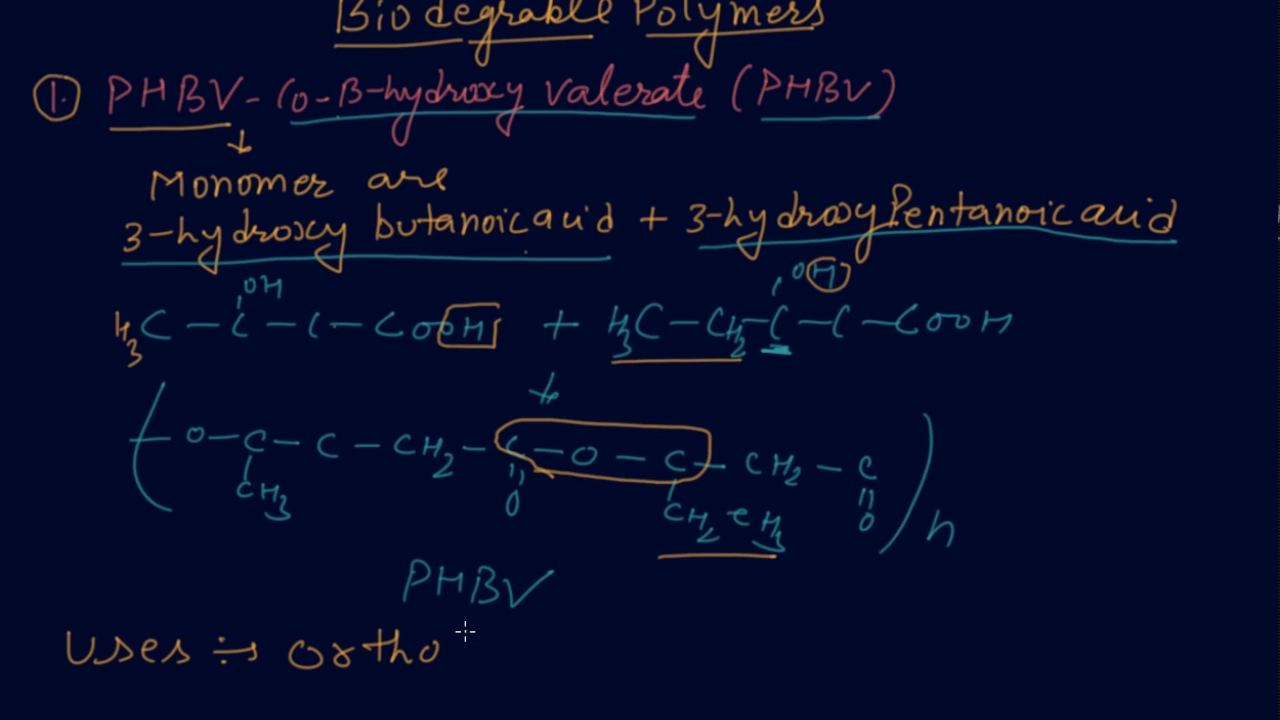 Biodegrable Polymers
① PHBV - Co-β-hydroxy valerate (PHBV)
Monomer are
3-hydroxy butanoic acid + 3-hydroxy Pentanoic acid
OH OH
H3C - C - C - COOH + H3C - CH2 - C - C - COOH
( O - C - C - CH2 - C - O - C - CH2 - C )n
CH3 O CH2 CH3 O
PHBV
Uses :- ortho